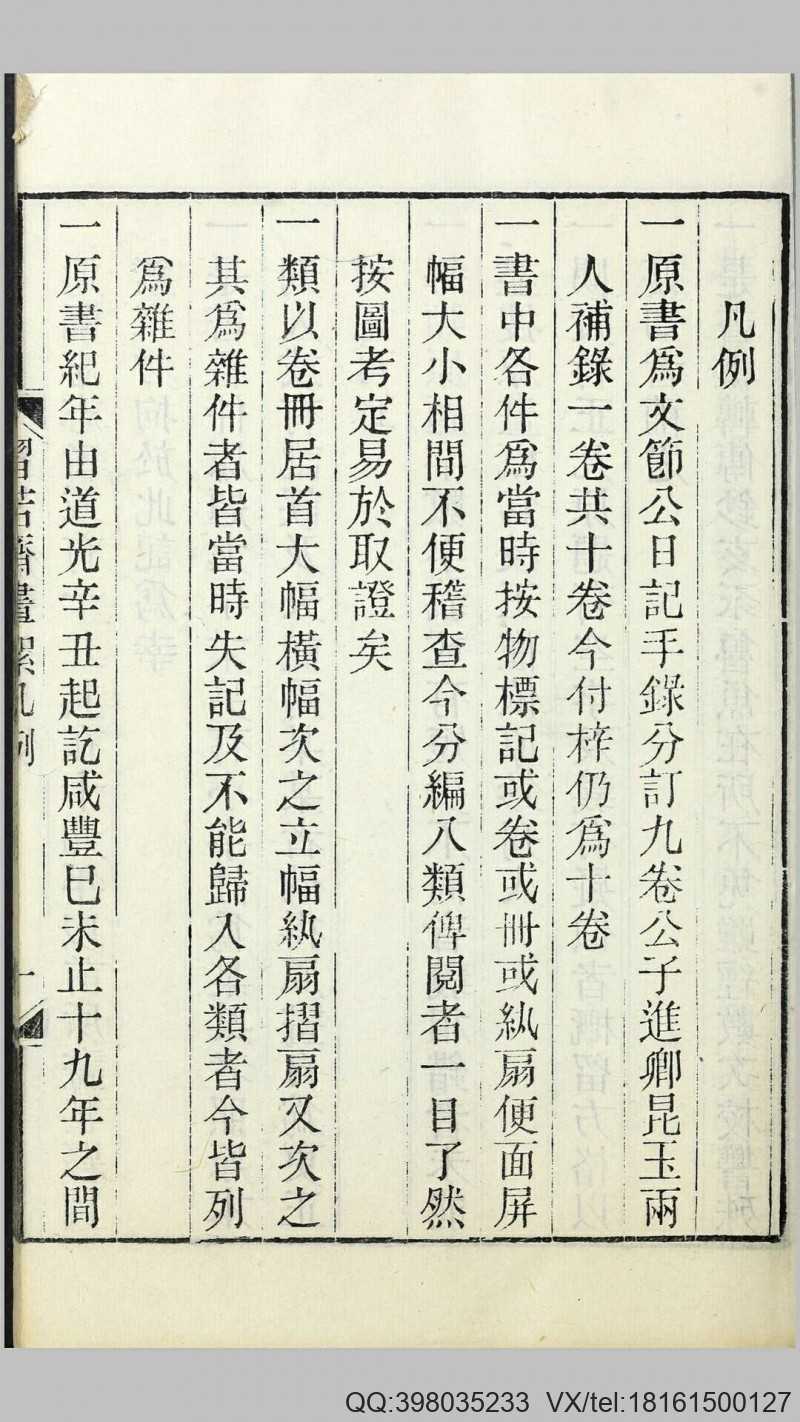 凡例
一原書爲文節公日記手錄分訂九卷公子進卿昆玉兩
人補錄一卷共十卷今付梓仍爲十卷
一書中各件爲當時按物標記或卷或冊或紈扇便面屏
幅大小相間不便稽查今分編八類俾閱者一目了然
按圖考定易於取證矣
一類以卷冊居首大幅橫幅次之立幅紈扇摺扇又次之
其爲雜件者皆當時失記及不能歸入各類者今皆列
爲雜件
一原書紀年由道光辛丑起訖咸豐巳未止十九年之間
習苦齋畫絮凡例
一
QQ:398035233 VX/tel:18161500127